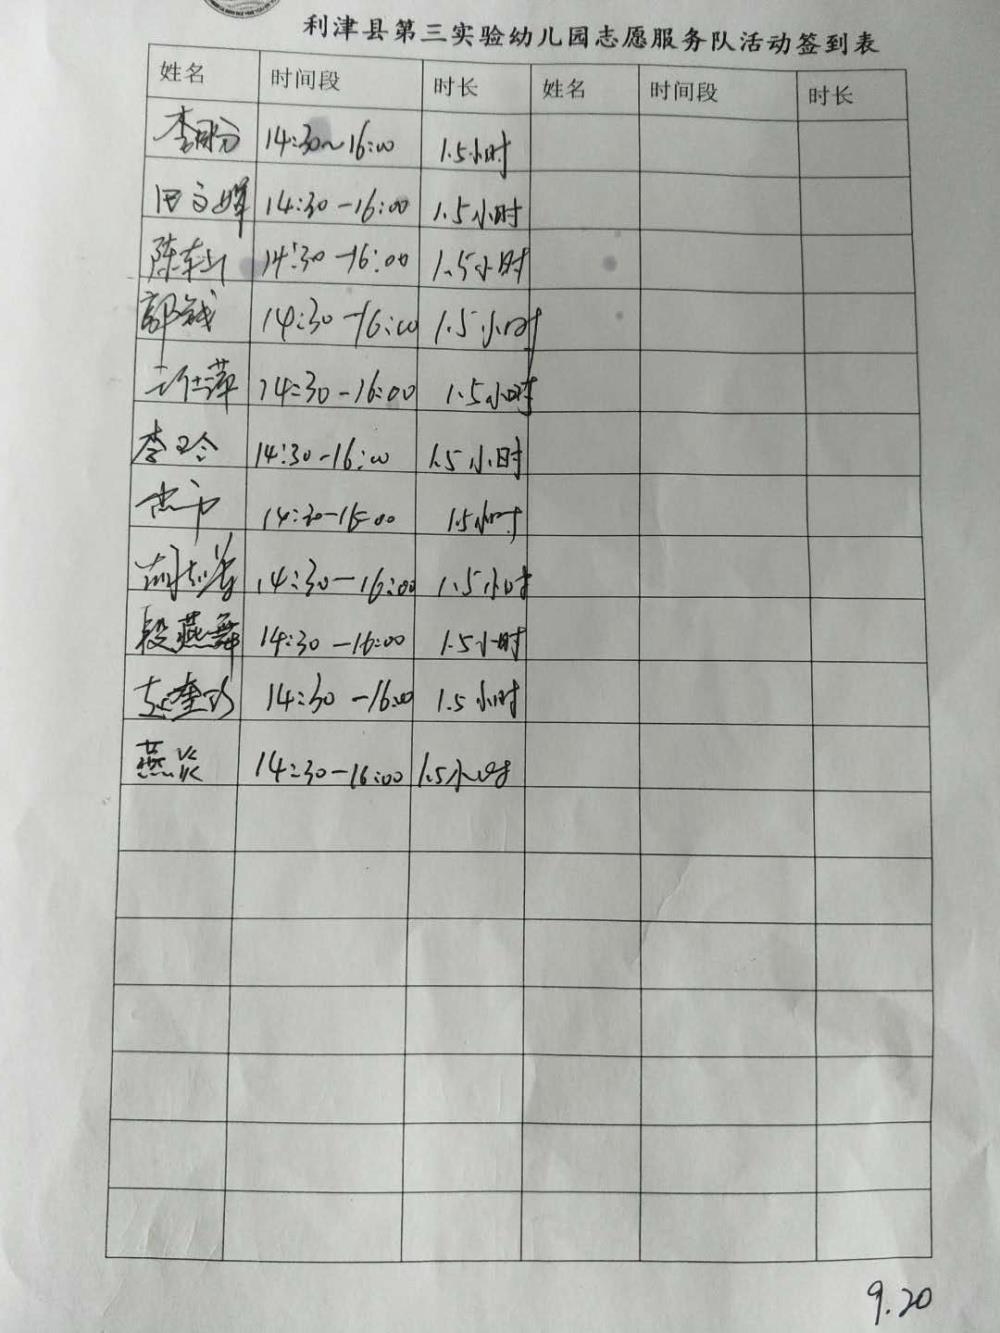 利津县第三实验幼儿园志愿服务队活动签到表
姓名 时间段 时长 姓名 时间段 时长
14:30~16:00 1.5小时
田文辉 14:30-16:00 1.5小时
陈东 14:30-16:00 1.5小时
郭 14:30-16:00 1.5小时
王仕萍 14:30-16:00 1.5小时
李卫令 14:30-16:00 1.5小时
14:30-16:00 1.5小时
14:30-16:00 1.5小时
段燕舞 14:30-16:00 1.5小时
14:30-16:00 1.5小时
燕 14:30-16:00 1.5小时
9.20